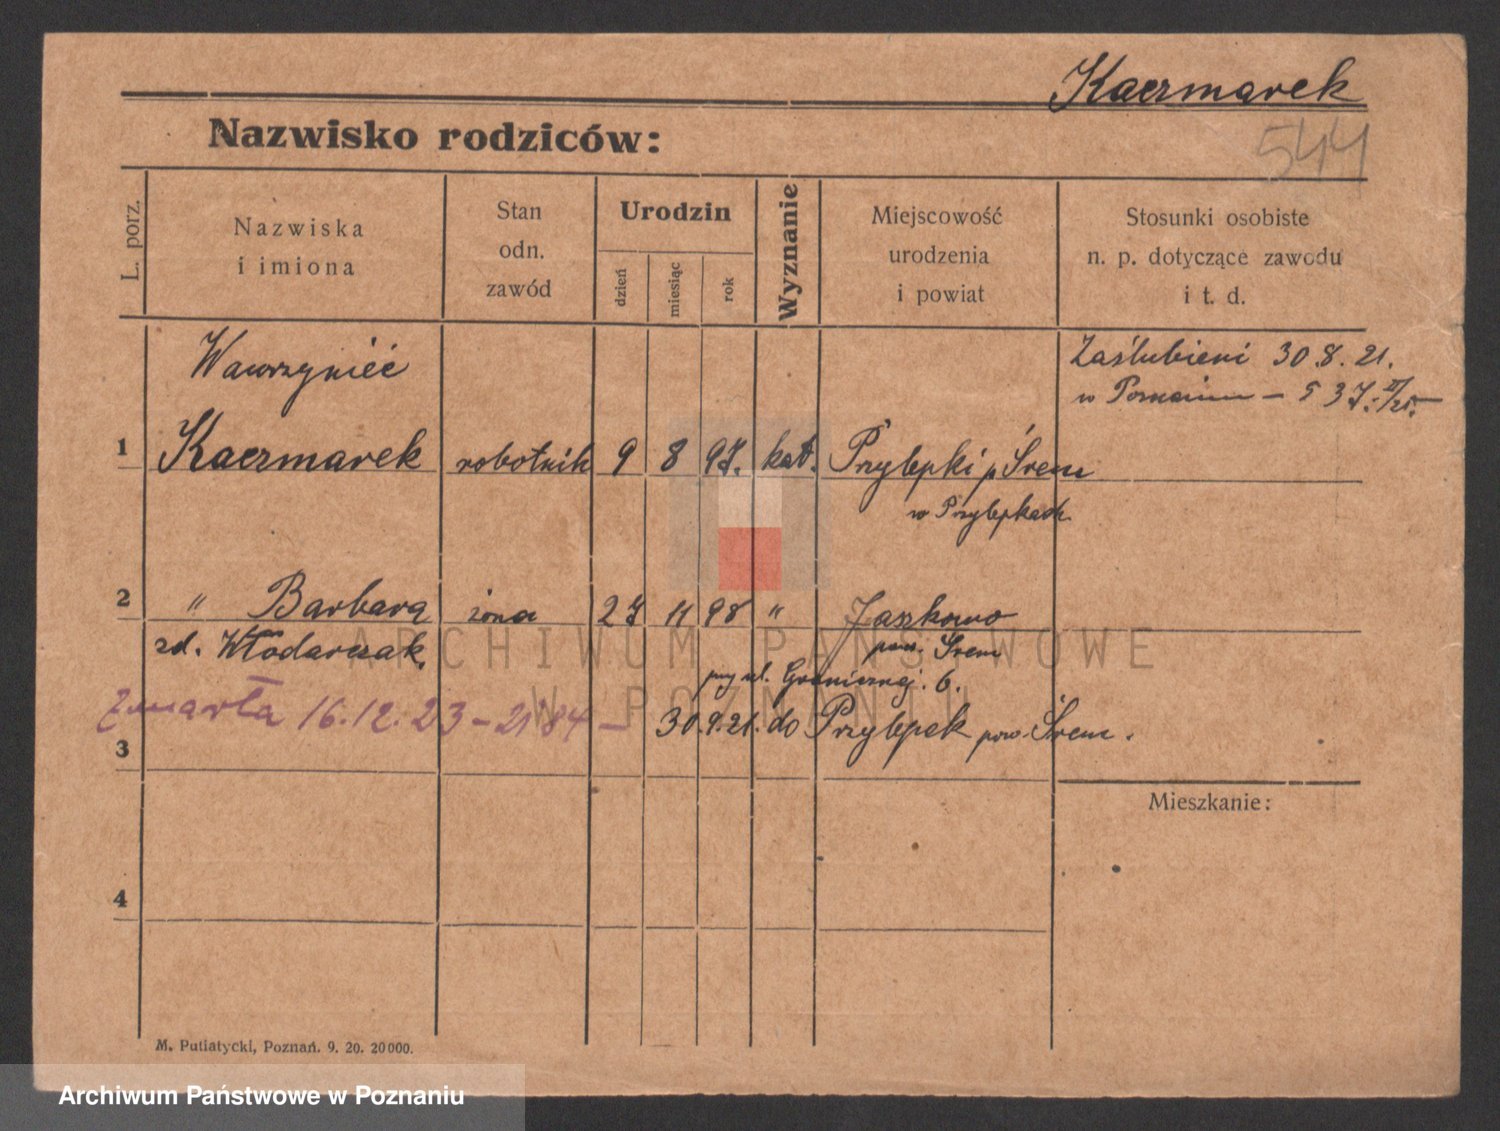 Kaczmarek
Nazwisko rodziców:
544
L. porz.
Nazwiska
i imiona
Stan
odn.
zawód
Urodzin
dzień
miesiąc
rok
Wyznanie
Miejscowość
urodzenia
i powiat
Stosunki osobiste
n. p. dotyczące zawodu
i t. d.
Wawrzyniéc
Zaślubieni 30.8.21.
w Poznaniu –
1 Kaczmarek robotnik 9 8 97. kat. Przylepki p Śrem
w Przylepkach
2 " Barbara żona 27 11 98 " Jaszkowo
zd. Włodarczak. pow. Śrem
przy ul. Granicznej. 6.
Zmarła 16.12.23 – 2184 – 30.9.21. do Przylepek pow. Śrem.
3
Mieszkanie:
4
M. Putiatycki, Poznań. 9. 20. 20000.
ARCHIWUM PAŃSTWOWE
W POZNANIU
Archiwum Państwowe w Poznaniu